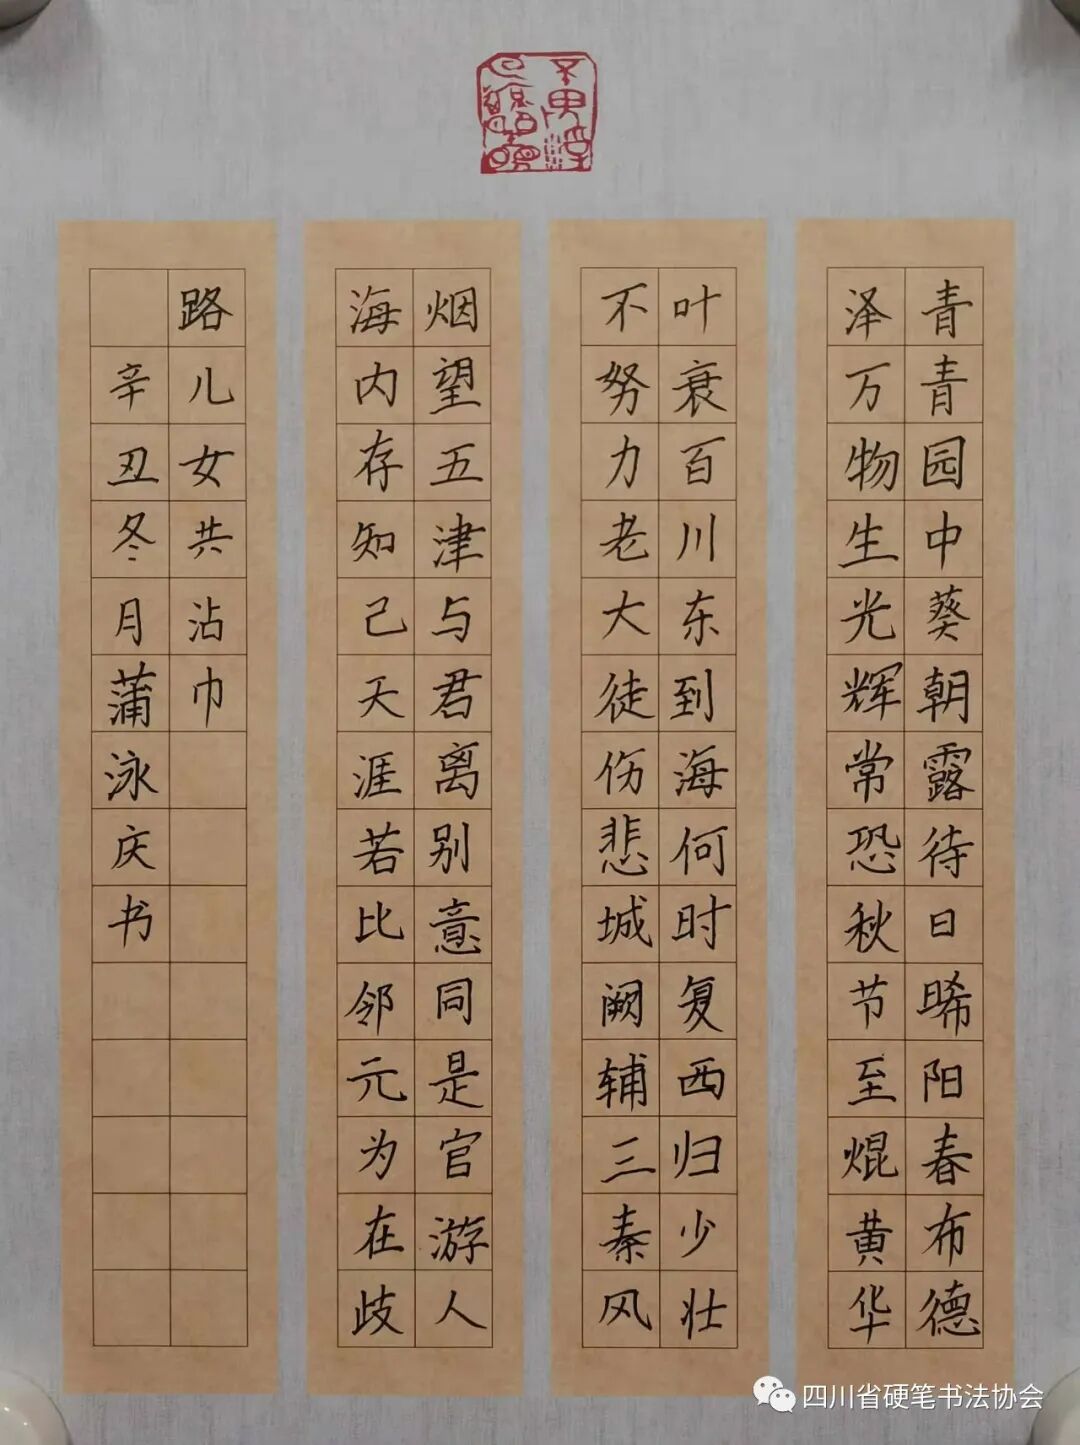 青青园中葵朝露待日晞阳春布德
泽万物生光辉常恐秋节至焜黄华
叶衰百川东到海何时复西归少壮
不努力老大徒伤悲城阙辅三秦风
烟望五津与君离别意同是官游人
海内存知己天涯若比邻元为在歧
路儿女共沾巾
辛丑冬月蒲泳庆书
四川省硬笔书法协会